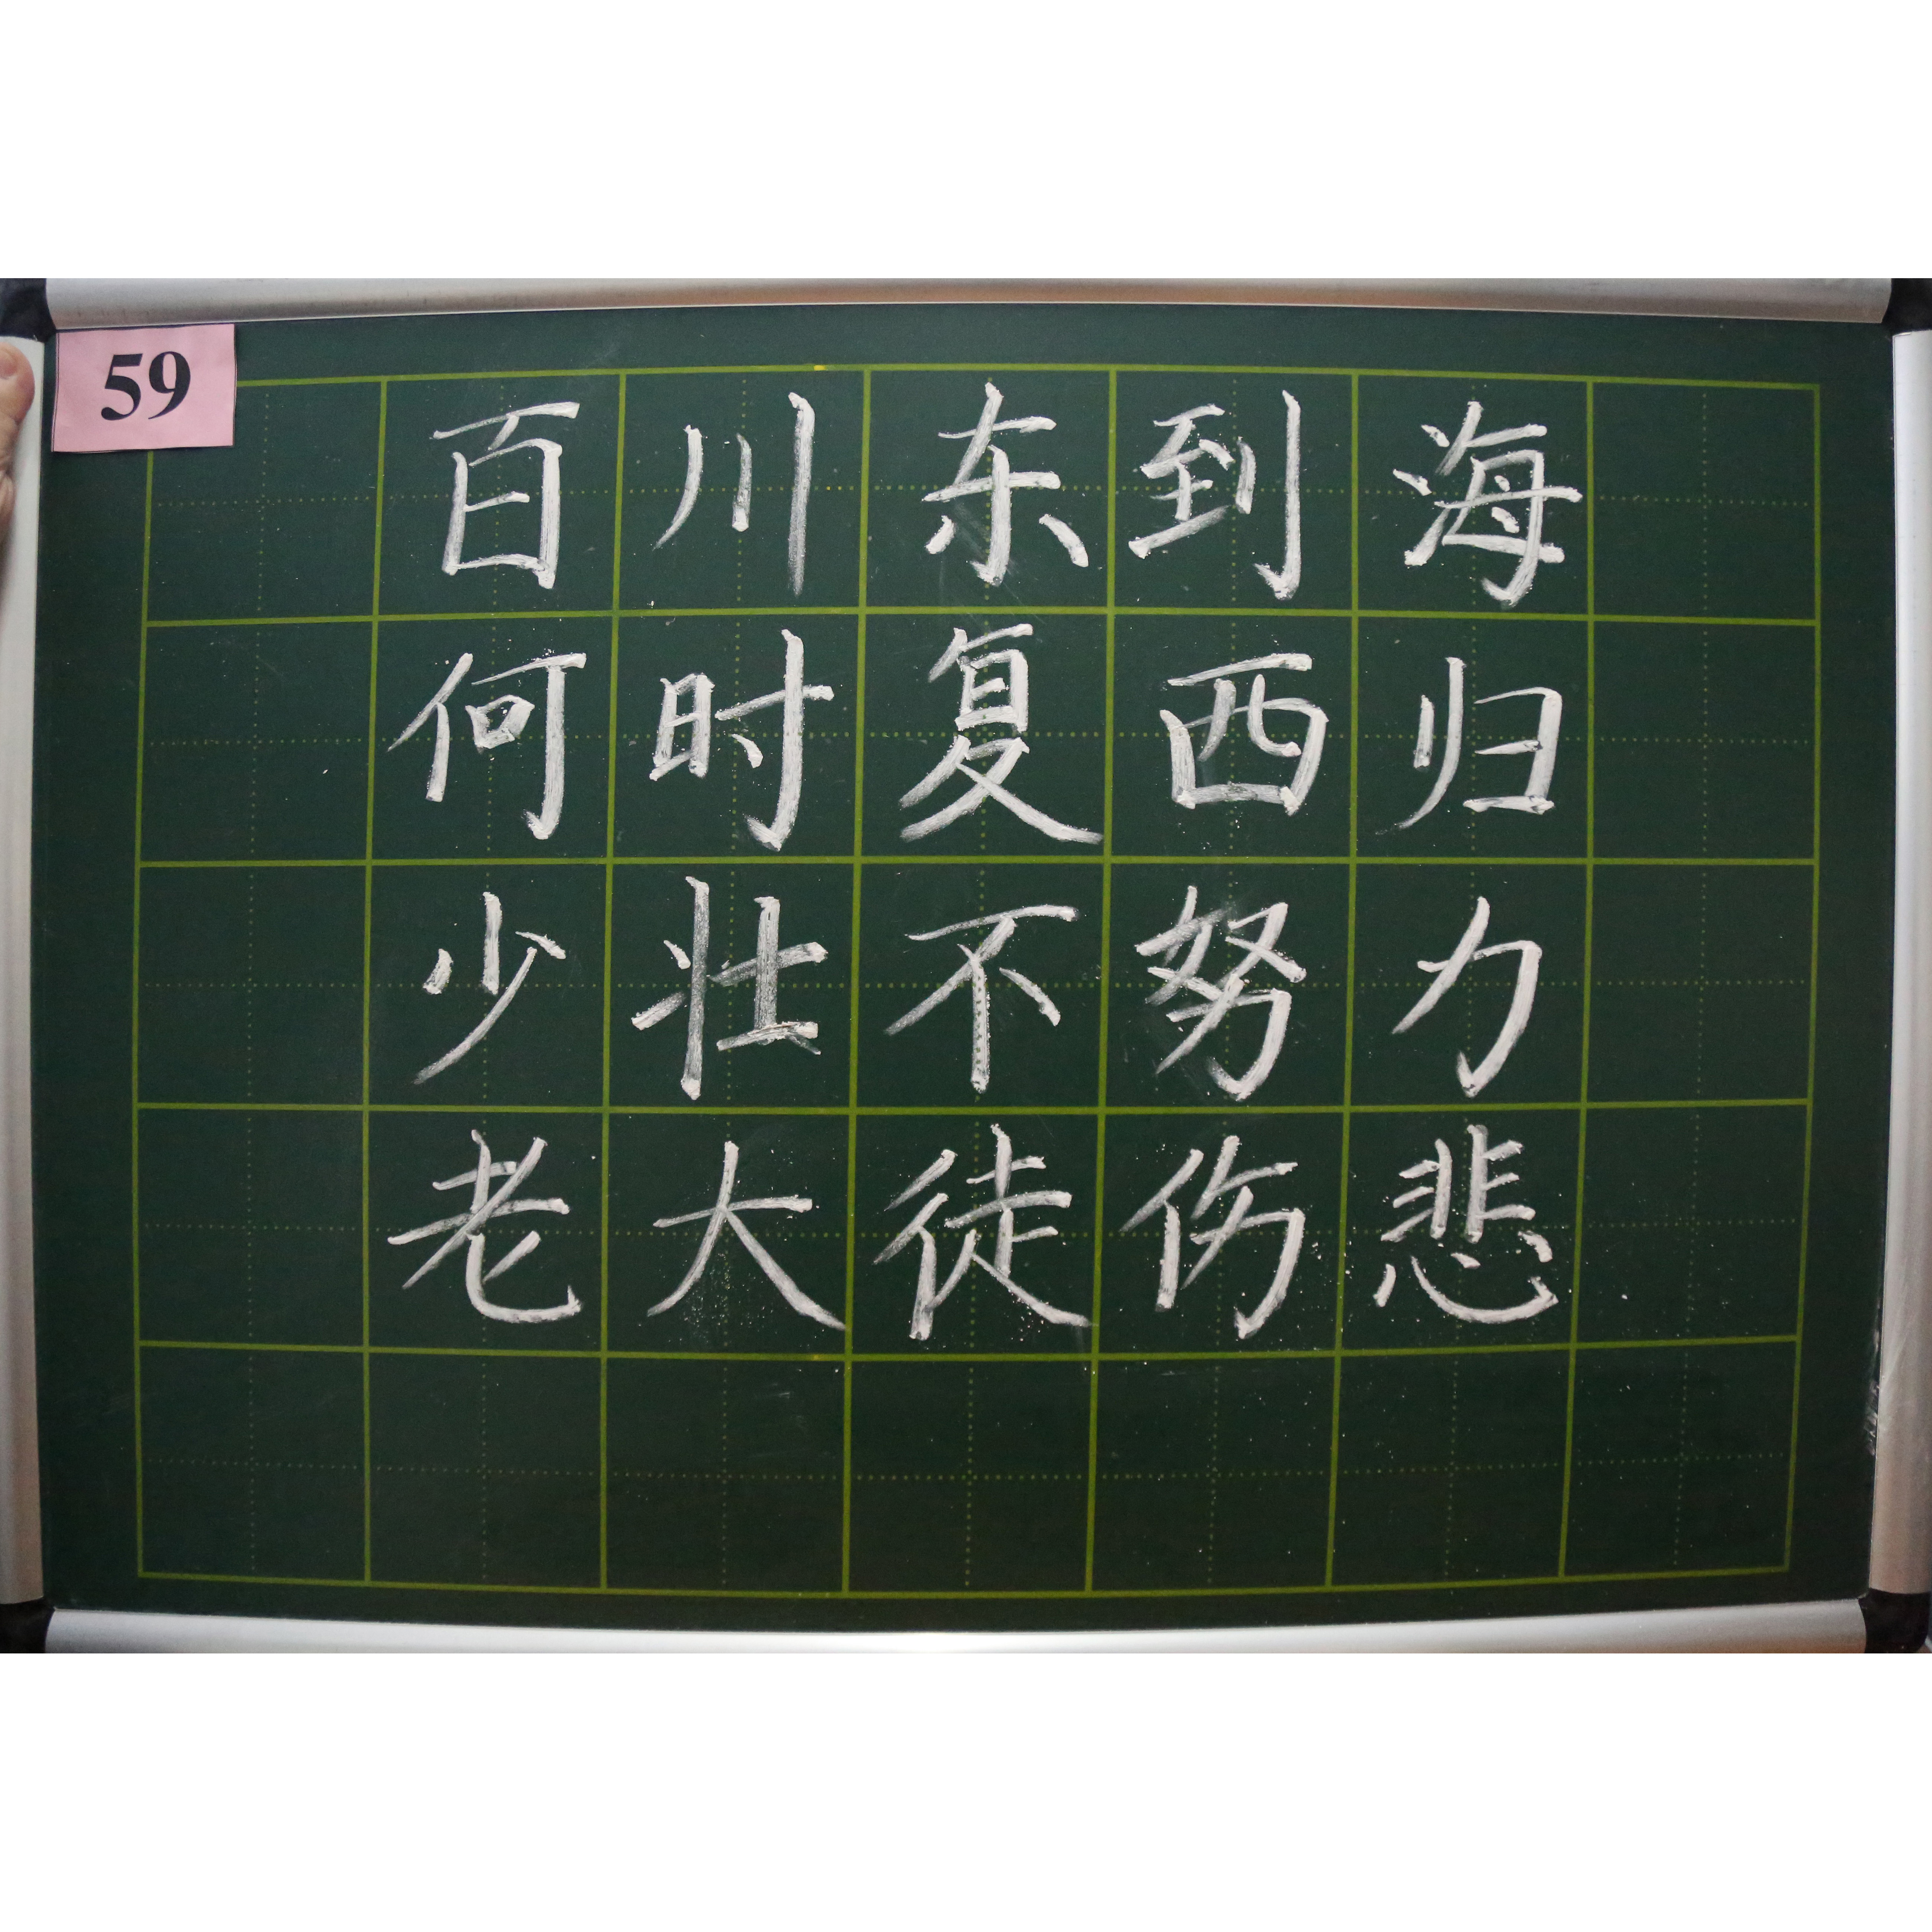 59
百川东到海
何时复西归
少壮不努力
老大徒伤悲